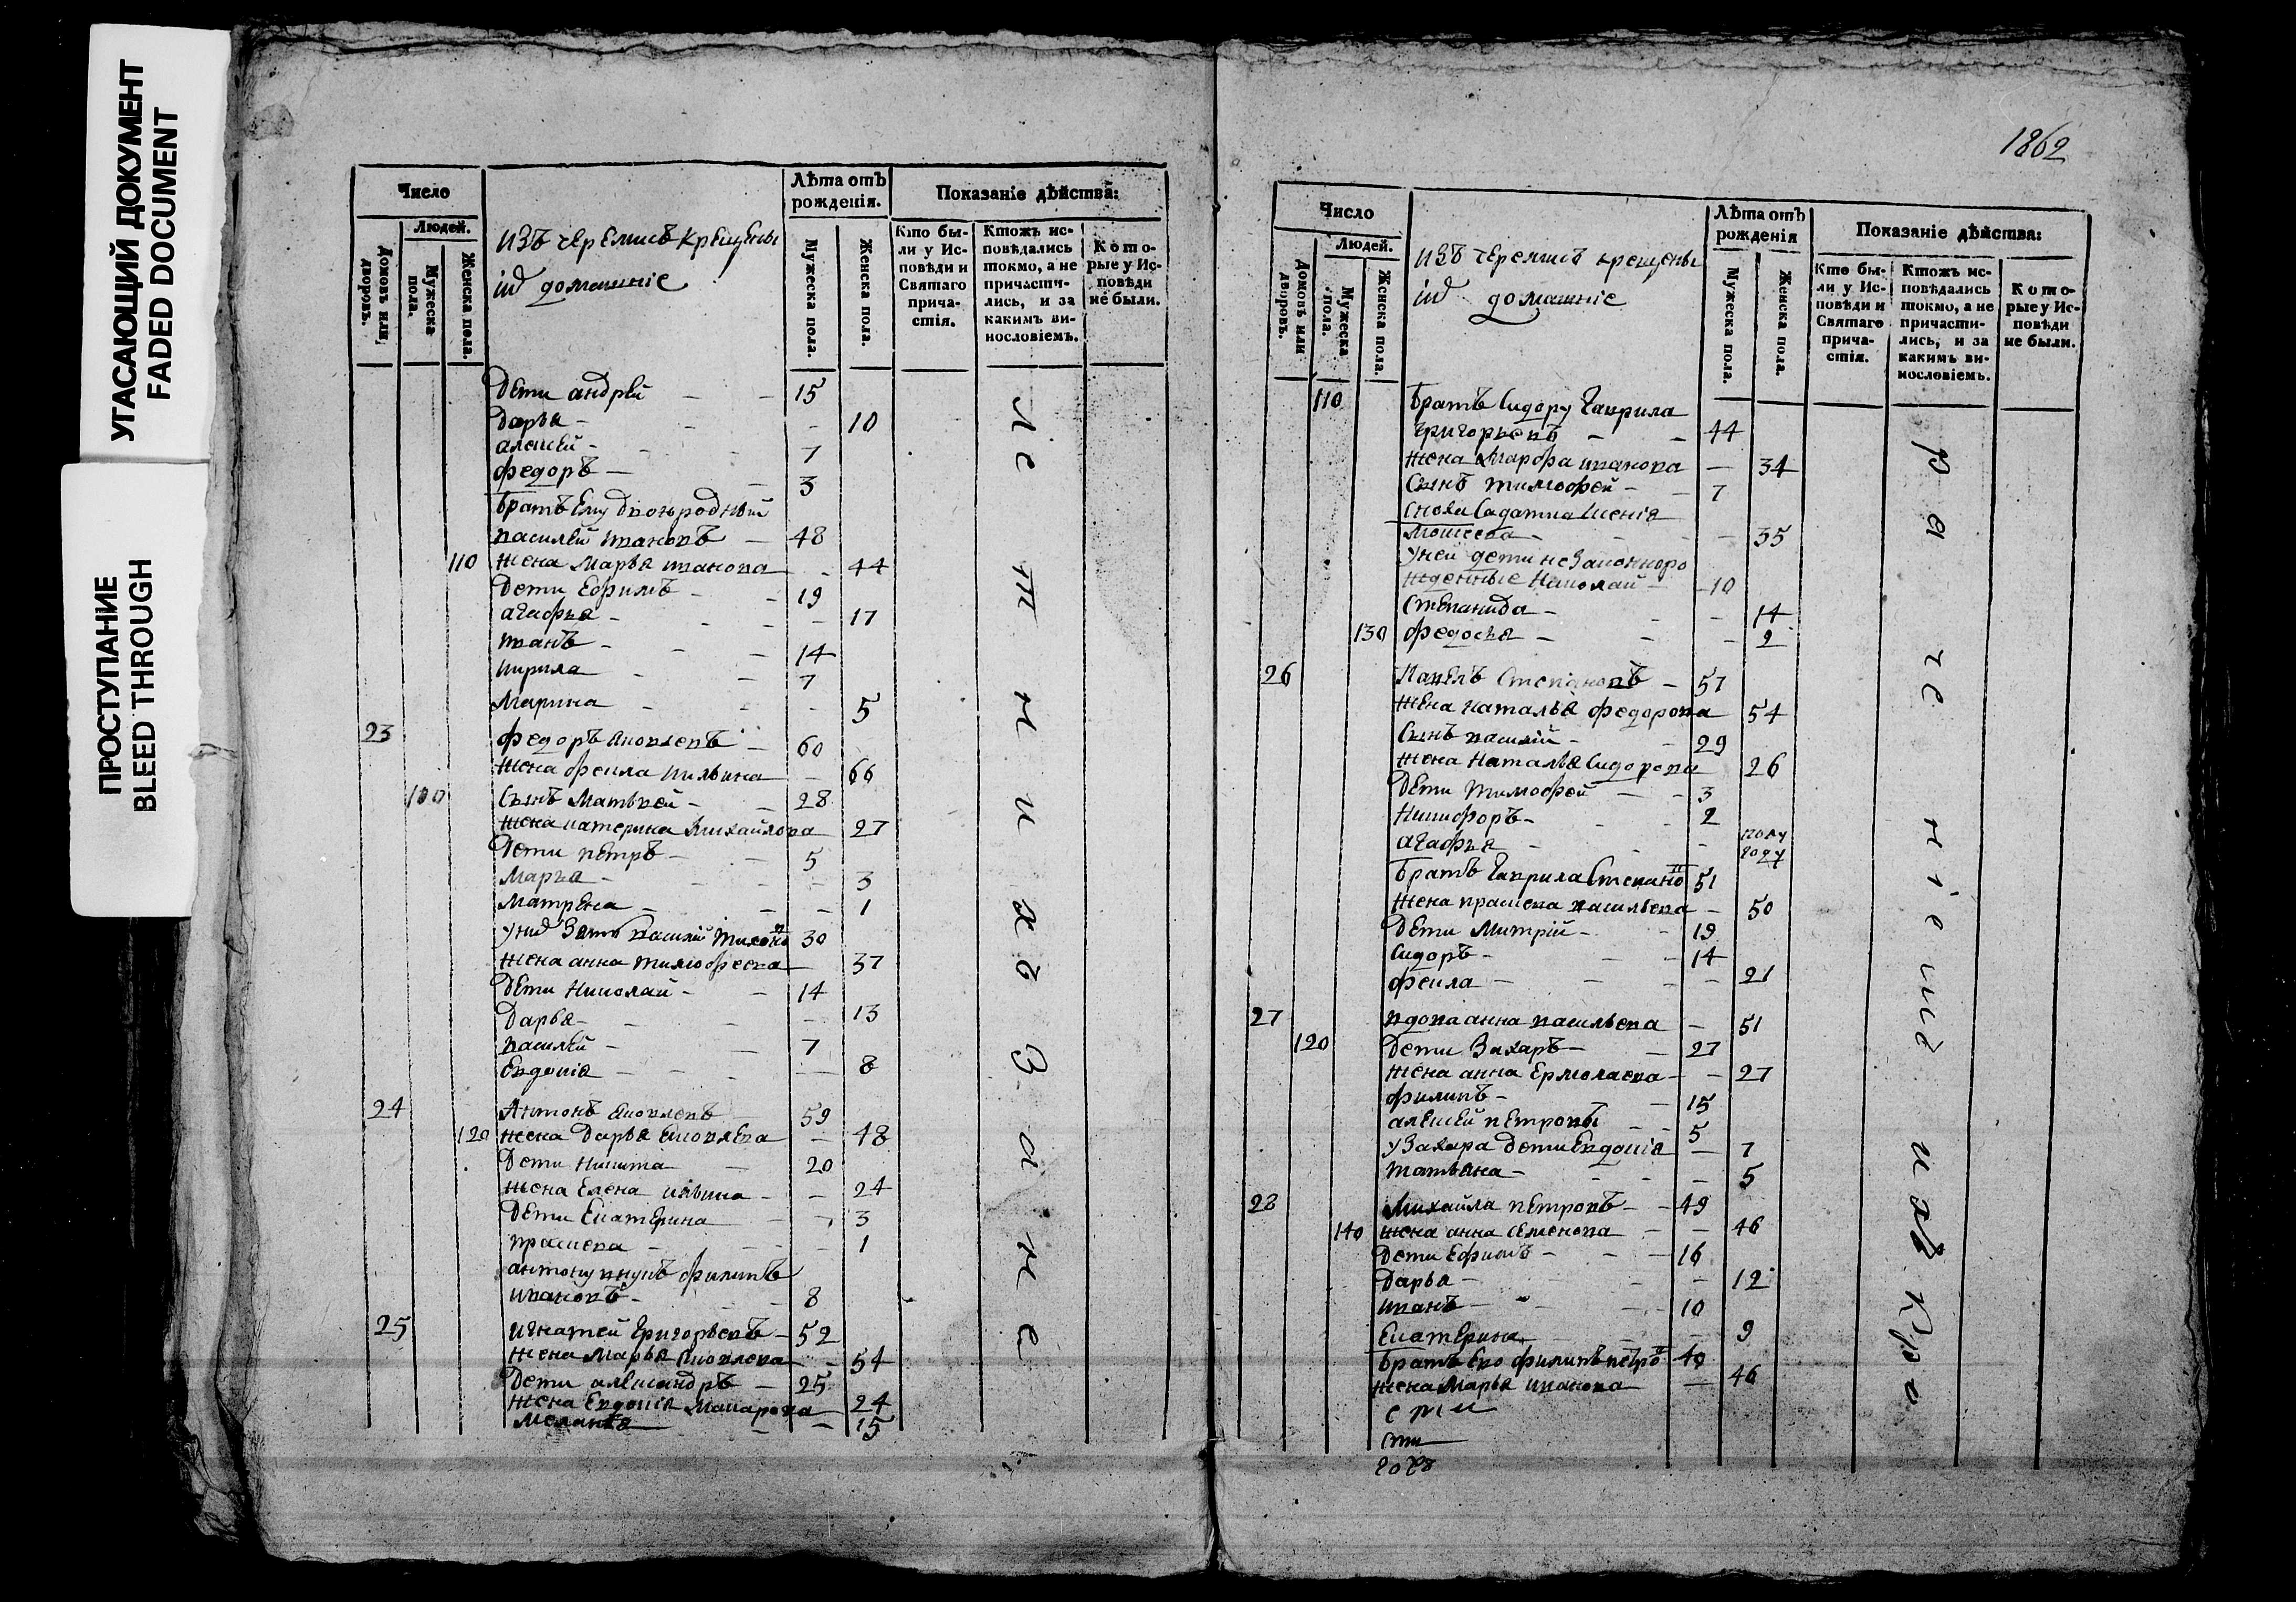 УГАСАЮЩИЙ ДОКУМЕНТ
FADED DOCUMENT
ПРОСТУПАНИЕ
BLEED THROUGH
Число
Людей.
Домовъ или дворовъ.
Мужеска пола.
Женска пола.
изъ черемисъ крещены
ихъ домашніе
Лѣта отъ рожденія.
Мужеска пола.
Женска пола.
Показаніе дѣйства:
Кто бы-
ли у Ис-
повѣди и
Святаго
прича-
стія.
Ктожъ ис-
повѣдались
токмо, а не
причасти-
лись, и за
какимъ ви-
нословіемъ.
Кото-
рые у Ис-
повѣди
не были.
Дети андрей 15
Дарья 10
алексей 7
федоръ 3
Братъ Ему двоюродный
василей ивановъ 48
110 жена Марья иванова 44
Дети Ефимъ 19
агафья 17
иванъ 14
кирила 7
Марина 5
23 федоръ яковлевъ 60
жена фекла ильина 66
100 Сынъ Матвей 28
жена катерина Михайлова 27
Дети петръ 5
Марья 3
Матрена 1
у них Зять василей тихоновъ 30
жена анна тимофеева 37
Дети Николай 14
Дарья 13
василей 7
Евдокія 8
24 Антонъ яковлевъ 59
120 жена Дарья яковлева 48
Дети Никита 20
жена Елена ильина 24
Дети Екатерина 3
прасковa 1
антону внукъ филипъ
ивановъ 8
25 игнатей григорьевъ 52
жена Марья яковлева 54
Дети александръ 25
жена Евдокія Макарова 24
Меланья 15
1862
Число
Людей.
Домовъ или дворовъ.
Мужеска пола.
Женска пола.
изъ черемисъ крещены
ихъ домашніе
Лѣта отъ рожденія
Мужеска пола.
Женска пола.
Показаніе дѣйства:
Кто бы-
ли у Ис-
повѣди и
Святаго
прича-
стія.
Ктожъ ис-
повѣдались
токмо, а не
причасти-
лись, и за
какимъ ви-
нословіемъ.
Кото-
рые у Ис-
повѣди
не были.
110 Братъ Сидору гаврила
григорьевъ 44
жена Марфа иванова 34
Сынъ тимофей 7
сноха Садатка
35
у ней дети незаконноро
жденные Николай 10
Степанида 14
130 федосья 2
26 Павелъ Степановъ 57
жена наталья федорова 54
Сынъ василій 29
жена Наталья Сидорова 26
Дети тимофей 3
Никифоръ 2
агафья полу
году
Братъ гаврила Степановъ 51
жена васильева 50
Дети Митрій 19
Сидоръ 14
фекла 21
27 вдова анна васильева 51
120 Дети Захаръ 27
жена анна Ермолаева 27
филипъ 15
алексей петровы 5
у Захара дети Евдокія 7
татьяна 5
28 Михайла петровъ 49
140 жена анна семенова 46
Дети Ефимъ 16
Дарья 12
иванъ 10
Екатерина 9
Братъ Ево филипъ петровъ 40
жена Марья иванова 46